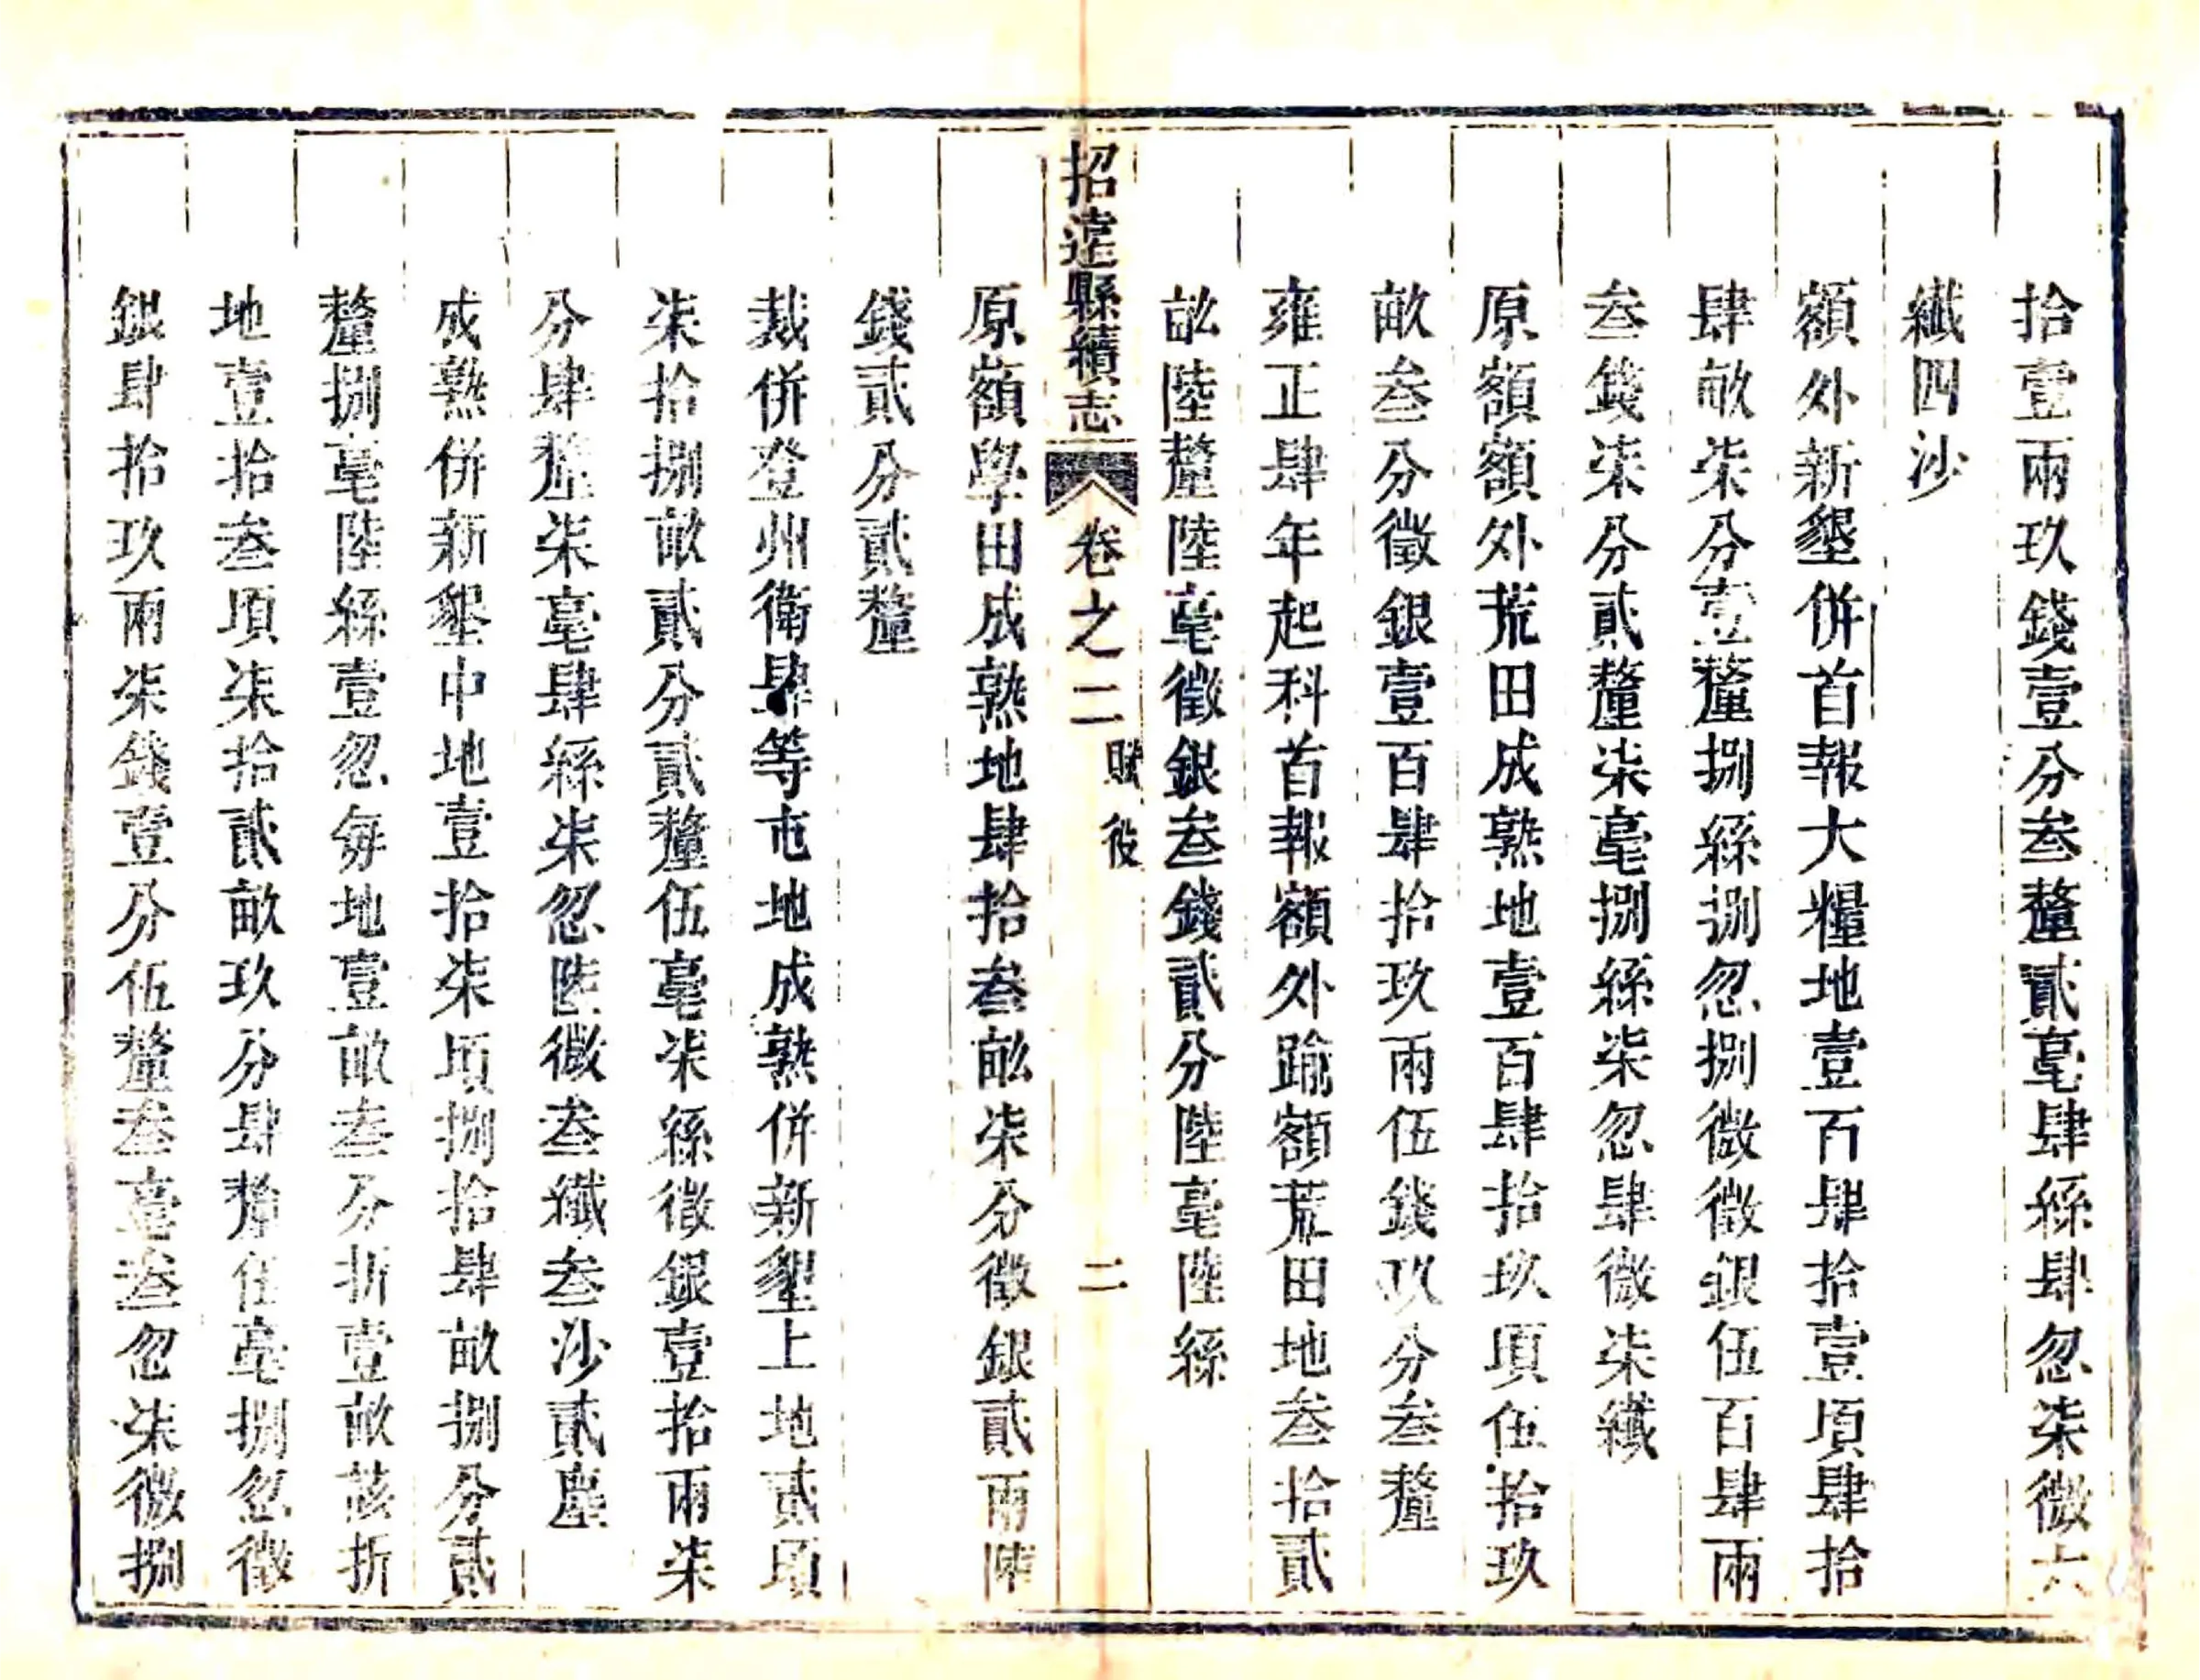 拾壹兩玖錢壹分叁釐貳毫肆絲肆忽柒微六
纖四沙
額外新墾併首報大糧地壹百肆拾壹項肆拾
肆畝柒分壹釐捌絲捌忽捌微徵銀伍百肆兩
叁錢柒分貳釐柒毫捌絲柒忽肆微柒纖
原額額外荒田成熟地壹百肆拾玖項伍拾玖
畝叁分徵銀壹百肆拾玖兩伍錢玖分叁釐
雍正肆年起科首報額外踰額荒田地叁拾貳
畆陸釐陸毫徵銀叁錢貳分陸毫陸絲
招遠縣續志 卷之二 賦役 二
原額學田成熟地肆拾叁畆柒分徵銀貳兩陸
錢貳分貳釐
裁併登州衛肆等屯地成熟併新墾上地貳頃
柒拾捌畝貳分貳釐伍毫柒絲徵銀壹拾兩柒
分肆釐柒毫肆絲柒忽陸微叁纖叁沙貳塵
成熟併新墾中地壹拾柒頃捌拾肆畝捌分貳
釐捌毫陸絲壹忽每地壹畝叁分折壹畝該折
地壹拾叁項柒拾貳畝玖分肆釐伍毫捌忽徵
銀肆拾玖兩柒錢壹分伍釐叁毫叁忽柒微捌